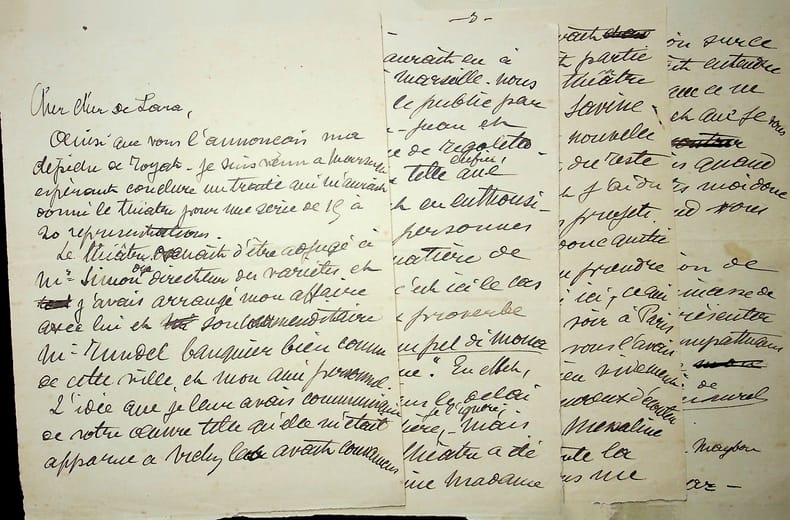 Cher Cher de Lara,
Ainsi que vous l'annonçait ma
dépêche de Royat - je suis venu à Marseille
espérant conclure un traité qui m'aurait
donné le théâtre pour une série de 15 à
20 représentations.
Le théâtre venait d'être adjugé à
Mr Simon directeur des variétés et
j'avais arrangé mon affaire
avec lui et son commanditaire
Mr Rundel banquier bien connu
de cette ville, et mon ami personnel.
L'idée que je leur avais communiquée
de votre œuvre telle qu'elle m'était
apparue à Vichy avait
-3-
aurait eu à
Marseille. nous
le public par
- Juan et
de Rigoletto -
enfin,
telle que
en enthousi-
personnes
matière de
c'est ici le cas
proverbe
pel di mona
". En effet,
le délai
je l'ignore,
mais
théâtre a été
Madame
partie
théâtre
Savine -
nouvelle
du reste
j'ai du
projets.
donc quitté
prendre
ici, ce qui
soir à Paris
vous l'avais
vivement
heureux d'écouter
Messaline
la
me
sur ce
entendre
que ce ne
et que je vous
quand
moi donc
vous
de
masse de
présenter
sympathiques
de
Maurel
Maybon